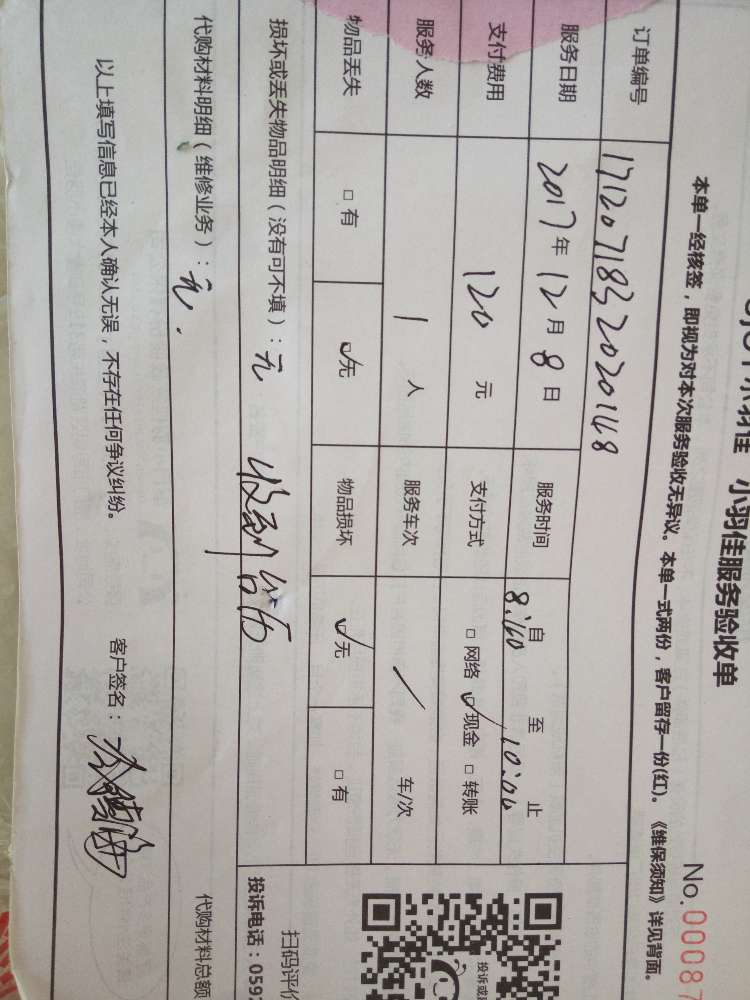 小羽佳 小羽佳服务验收单
No.00087
本单一经核签，即视为对本次服务验收无异议。本单一式两份，客户留存一份(红)。《维保须知》详见背面。
订单编号 1712071832020148
服务日期 2017年12月8日 服务时间 自8:40至10:00止
支付费用 120元 支付方式 □网络 ☑现金 □转账
服务人数 1人 服务车次 / 车/次
物品丢失 □有 ☑无 物品损坏 ☑无 □有
损坏或丢失物品明细（没有可不填）：无
代购材料明细（维修业务）：无.
代购材料总额
以上填写信息已经本人确认无误，不存在任何争议纠纷。
客户签名：
投诉或
扫码评价
投诉电话：0592